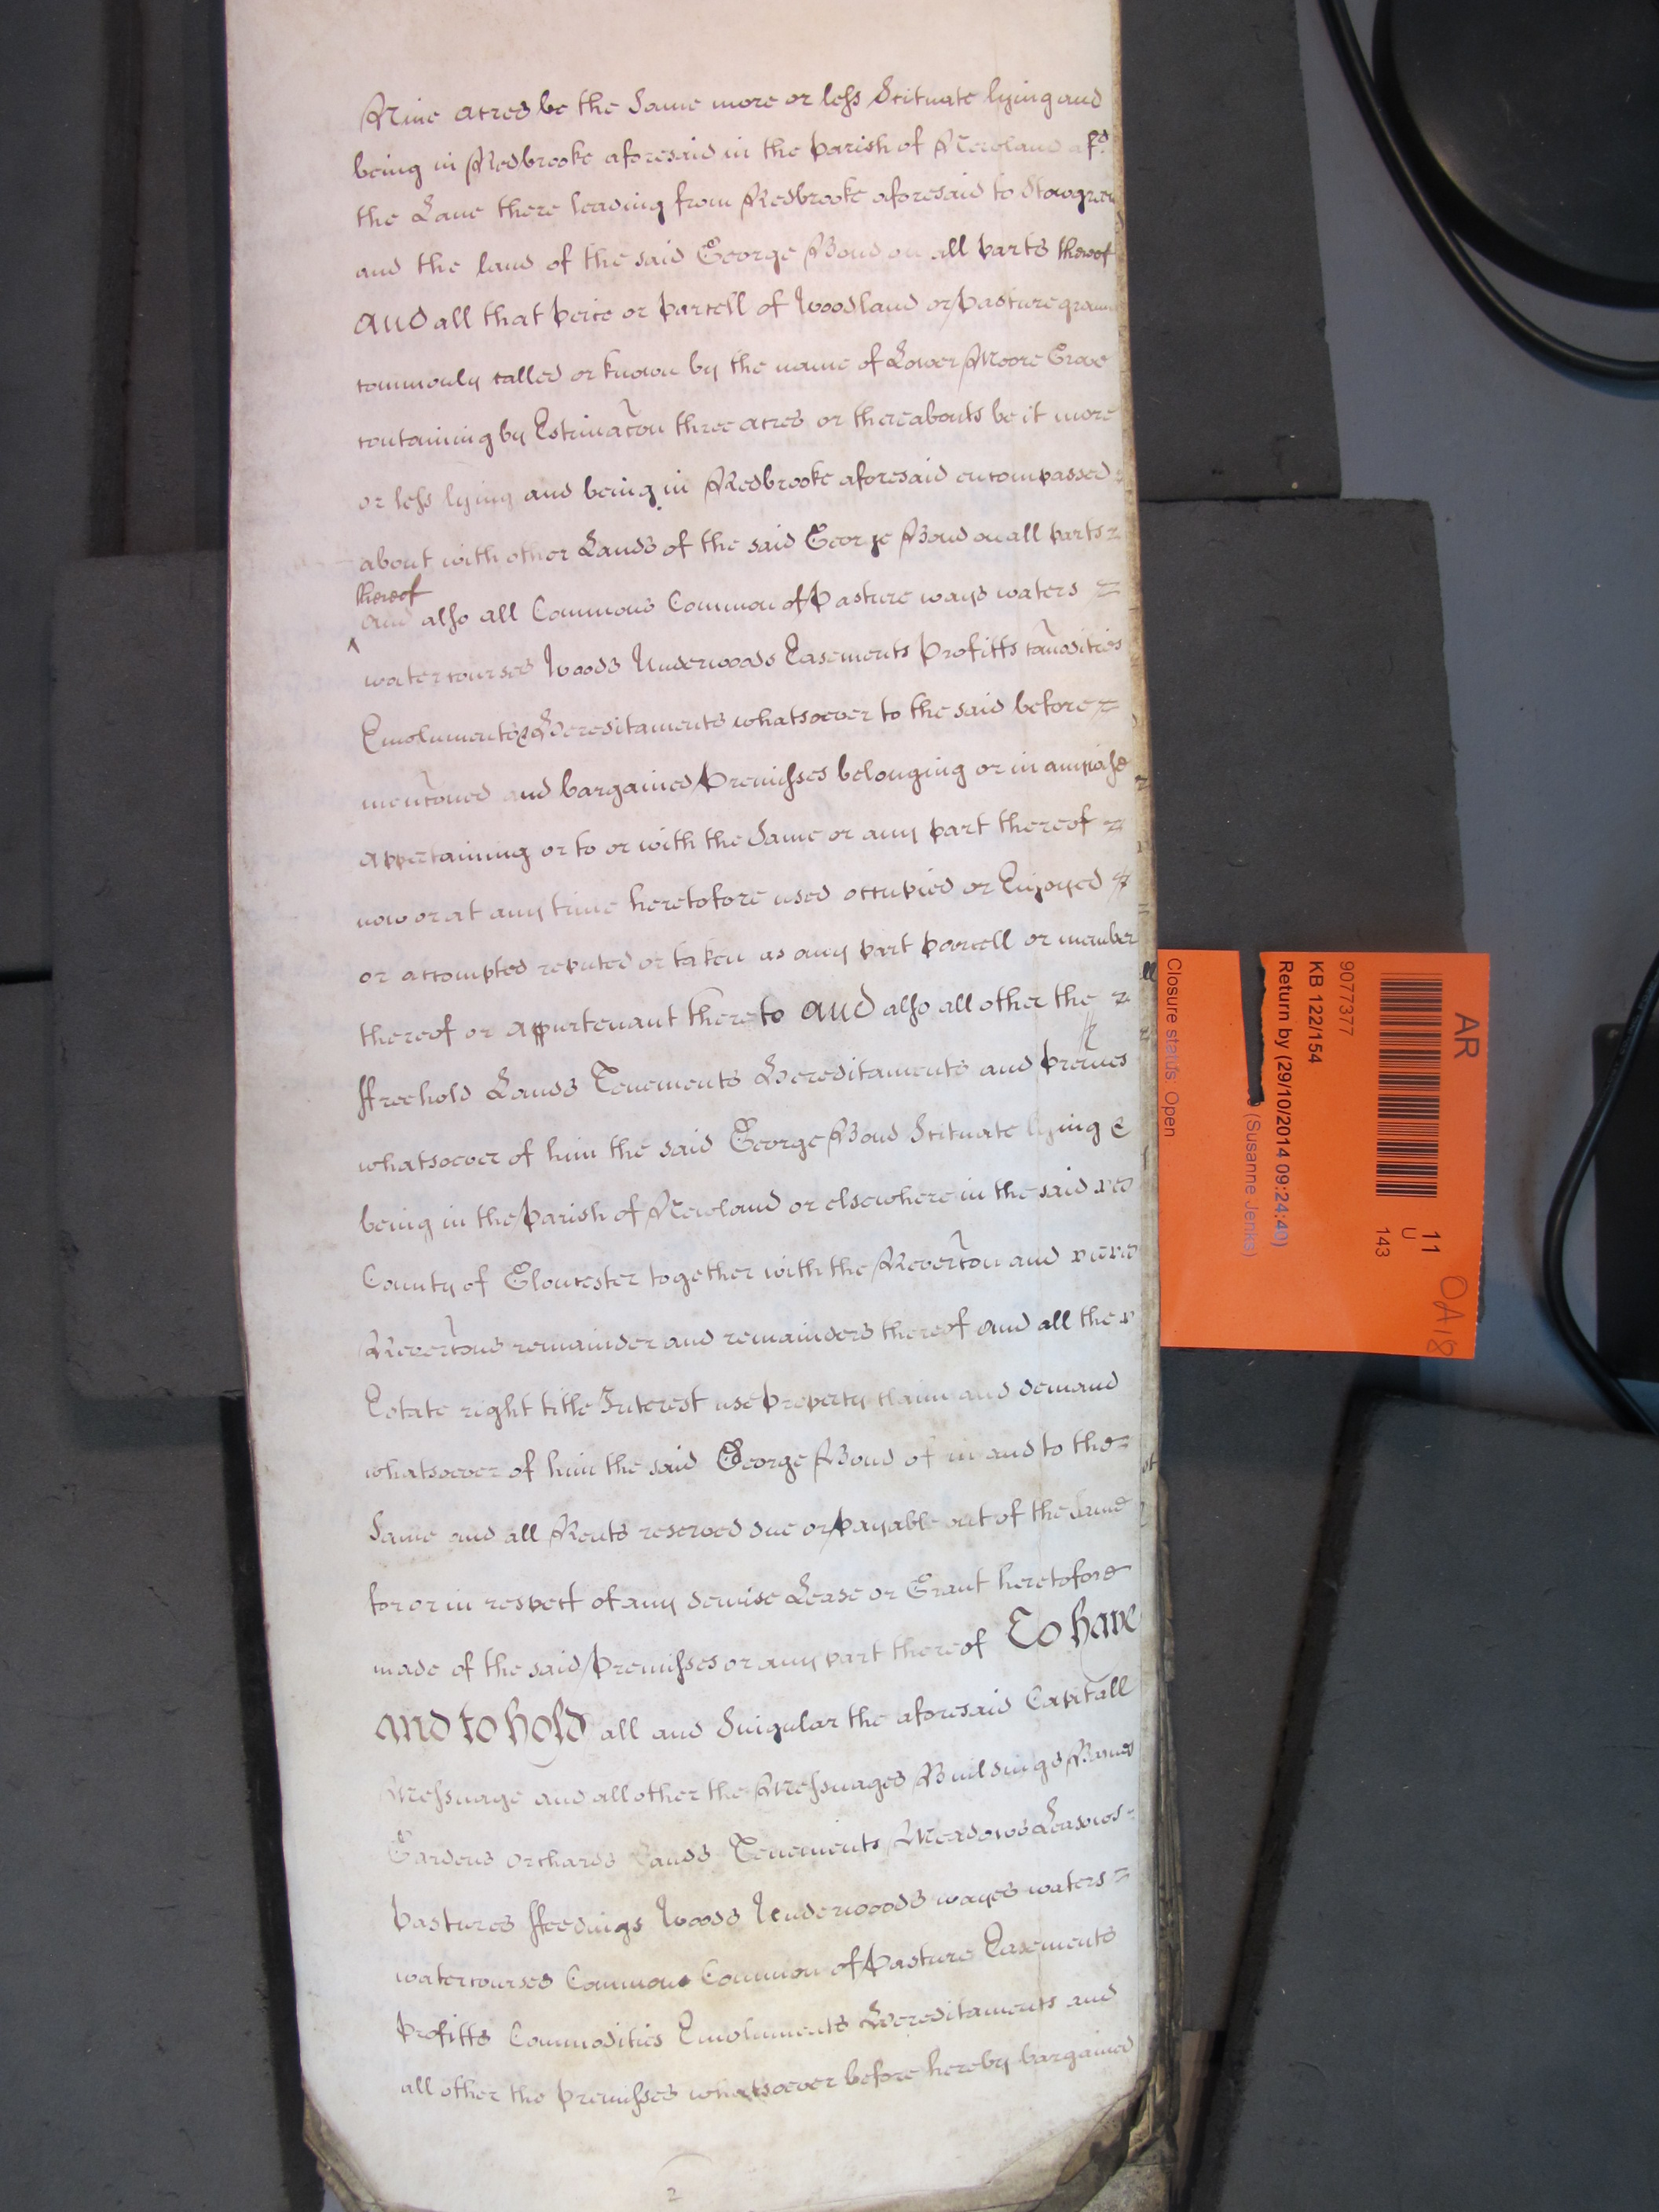 Nine acres be the Same more or less Scituate lying and
being in Redbrooke aforesaid in the parish of Newland afd.
the Lane there leading from Redbrooke aforesaid to
and the land of the said George Bond on all parts thereof
And all that peice or parcell of Woodland or pasture
commonly called or known by the name of Lower Moore Grove
containing by Estimacon three acres or thereabouts be it more
or less lying and being in Redbrooke aforesaid encompassed
about with other Lands of the said George Bond on all parts
thereof
and also all Commons Common of Pasture ways waters
watercourses Woods Underwoods Easements Profitts comodities
Emoluments & Hereditaments whatsoever to the said before
mencioned and bargained Premisses belonging or in anywise
appertaining or to or with the Same or any part thereof
now or at any time heretofore used occupied or Enjoyed
or accompted reputed or taken as any part parcell or member
thereof or appurtenant thereto And also all other the
ffreehold Lands Tenements Hereditaments and premes
whatsoever of him the said George Bond Scituate lying &
being in the Parish of Newland or elsewhere in the said
County of Gloucester together with the Revercon and
Revercons remainder and remainders thereof and all the
Estate right title Interest use property claim and demand
whatsoever of him the said George Bond of in and to the
Same and all Rents reserved due or payable out of the same
for or in respect of any demise Lease or Grant heretofore
made of the said Premisses or any part thereof To have
and to hold all and Singular the aforesaid Capitall
Messuage and all other the Messuages Buildings Barnes
Gardens Orchards Lands Tenements Meadows Leasows
Pastures ffeedings Woods Underwoods wayes waters
watercourses Commons Common of Pasture Easements
Profitts Commodities Emoluments Hereditaments and
all other the Premisses whatsoever before hereby bargained
2
AR
11
U
143
OA18
9077377
KB 122/154
Return by (29/10/2014 09:24:40)
(Susanne Jenks)
Closure status: Open